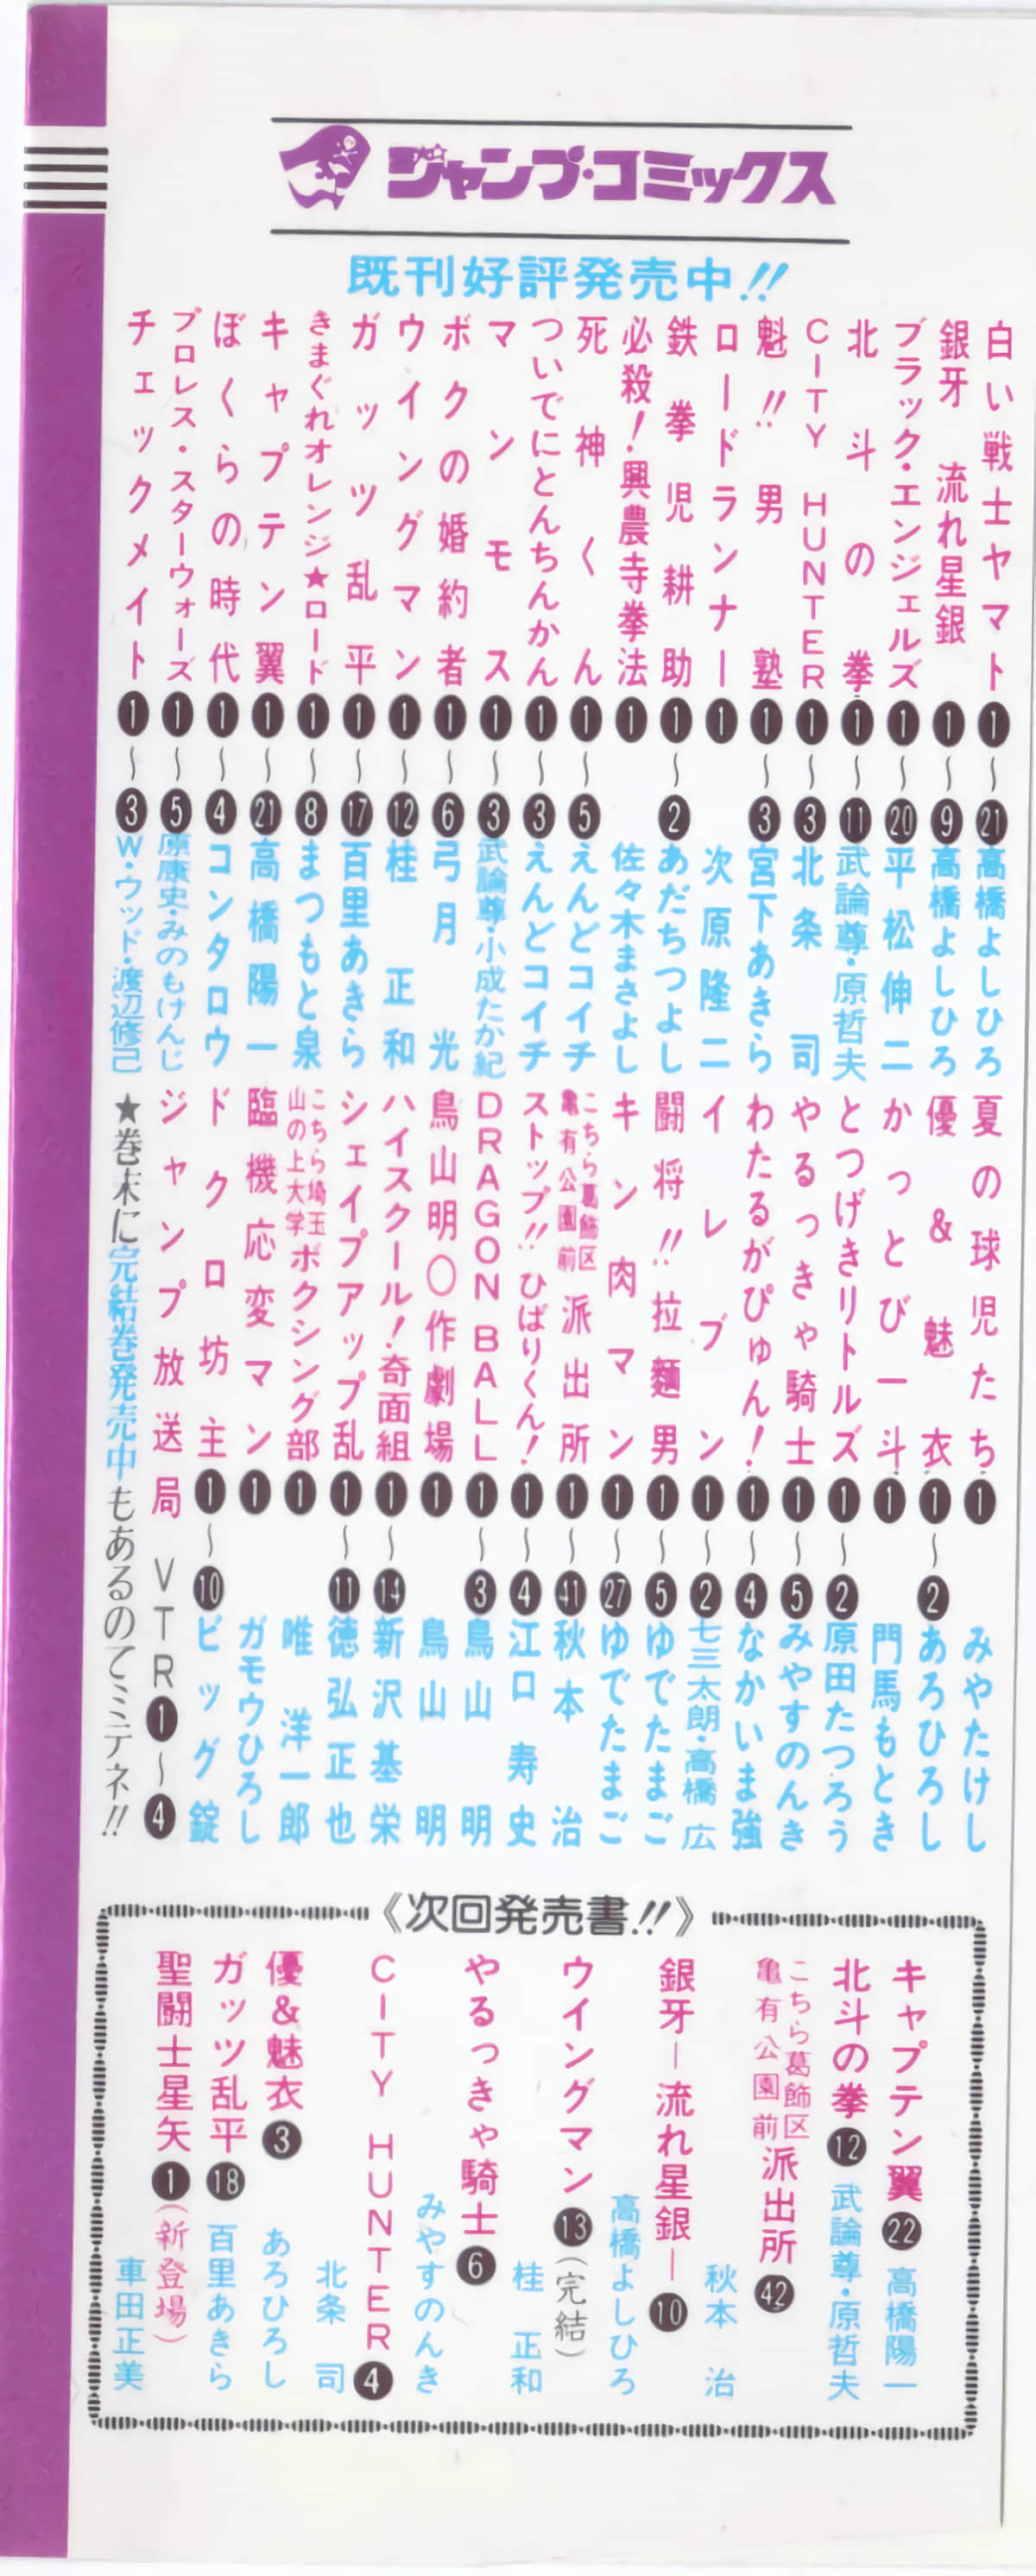 ジャンプ・コミックス
既刊好評発売中!!
白い戦士ヤマト❶〜㉑高橋よしひろ
銀牙 流れ星銀❶〜❾高橋よしひろ
ブラック・エンジェルズ❶〜⓴平松伸二
北斗の拳❶〜⓫武論尊・原哲夫
CITY HUNTER❶〜❸北条司
魁!!男塾❶〜❸宮下あきら
ロードランナー❶次原隆二
鉄拳児耕助❶〜❷あだちつよし
必殺!興農寺拳法❶佐々木まさよし
死神くん❶〜❺えんどコイチ
ついでにとんちんかん❶〜❸えんどコイチ
マンモス❶〜❸武論尊・小成たか紀
ボクの婚約者❶〜❻弓月光
ウイングマン❶〜⓬桂正和
ガッツ乱平❶〜⓱百里あきら
きまぐれオレンジ★ロード❶〜❽まつもと泉
キャプテン翼❶〜㉑高橋陽一
ぼくらの時代❶〜❹コンタロウ
プロレス・スターウォーズ❶〜❺原康史・みのもけんじ
チェックメイト❶〜❸W・ウッド・渡辺修己
夏の球児たち❶みやたけし
優&魅衣❶〜❷あろひろし
かっとび一斗❶門馬もとき
とつげきリトルズ❶〜❷原田たつろう
やるっきゃ騎士❶〜❺みやすのんき
わたるがぴゅん!❶〜❹なかいま強
イレブン❶〜❷七三太朗・高橋広
闘将!!拉麵男❶〜❺ゆでたまご
キン肉マン❶〜㉗ゆでたまご
こちら葛飾区亀有公園前派出所❶〜㊶秋本治
ストップ!!ひばりくん!❶〜❹江口寿史
DRAGON BALL❶〜❸鳥山明
鳥山明〇作劇場❶鳥山明
ハイスクール!奇面組❶〜⓮新沢基栄
シェイプアップ乱❶〜⓫徳弘正也
こちら埼玉山の上大学ボクシング部❶唯洋一郎
臨機応変マン❶ガモウひろし
ドクロ坊主❶〜❿ビッグ錠
ジャンプ放送局 VTR❶〜❹
★巻末に完結巻発売中もあるのでミテネ!!
《次回発売書!!》
キャプテン翼㉒ 高橋陽一
北斗の拳⓬ 武論尊・原哲夫
こちら葛飾区亀有公園前派出所㊷ 秋本治
銀牙ー流れ星銀ー❿ 高橋よしひろ
ウイングマン⓭(完結) 桂正和
やるっきゃ騎士❻ みやすのんき
CITY HUNTER❹ 北条司
優&魅衣❸ あろひろし
ガッツ乱平⓲ 百里あきら
聖闘士星矢❶(新登場) 車田正美